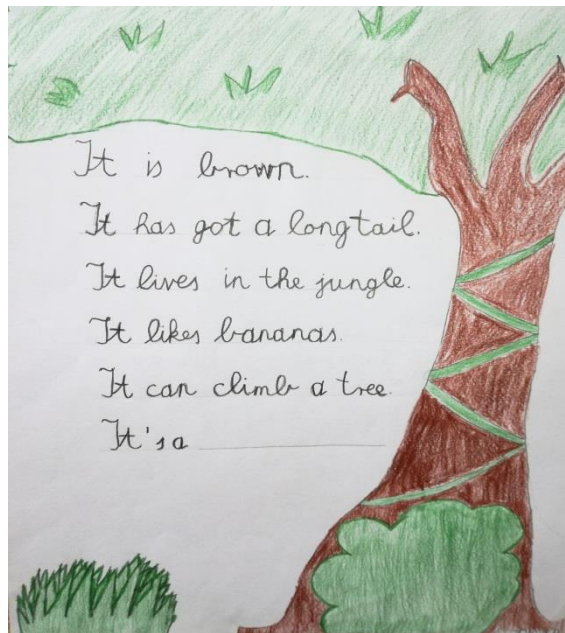 It is brown.
It has got a long tail.
It lives in the jungle.
It likes bananas.
It can climb a tree.
It's a